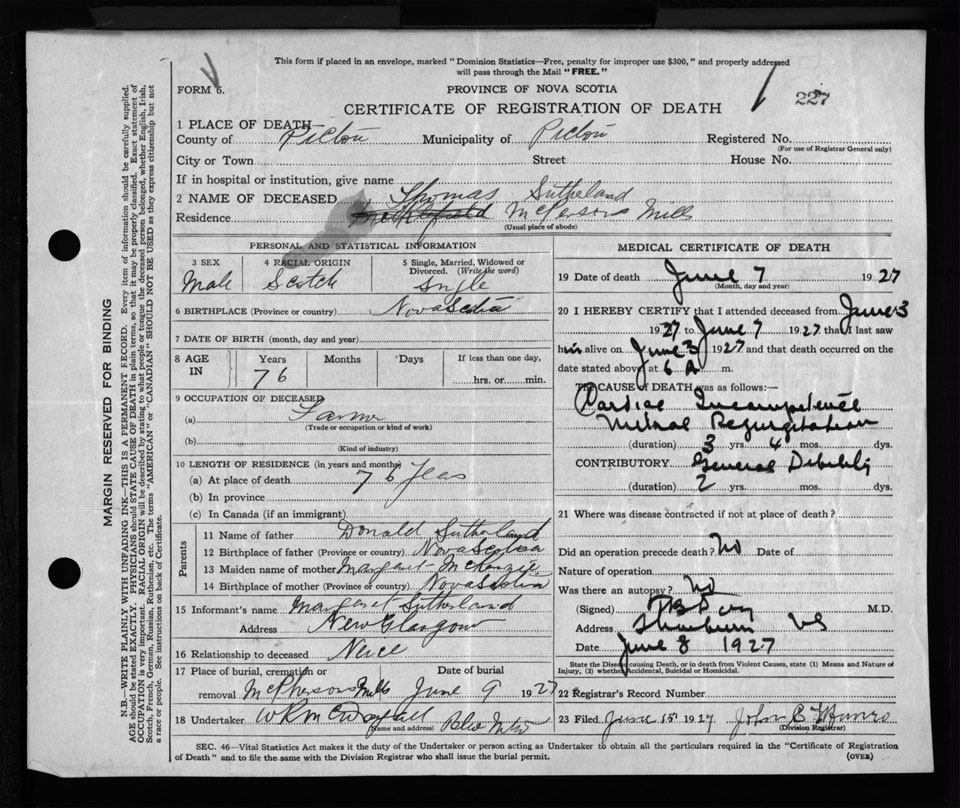 This form if placed in an envelope, marked "Dominion Statistics—Free, penalty for improper use $300," and properly addressed
will pass through the Mail "FREE."
FORM 6.
PROVINCE OF NOVA SCOTIA
CERTIFICATE OF REGISTRATION OF DEATH
227
1 PLACE OF DEATH
County of Pictou Municipality of Pictou Registered No.
(For use of Registrar General only)
City or Town Street House No.
If in hospital or institution, give name
2 NAME OF DECEASED Thomas Sutheland
Residence McPersons Mills
(Usual place of abode)
PERSONAL AND STATISTICAL INFORMATION
3 SEX 4 RACIAL ORIGIN 5 Single, Married, Widowed or
Divorced. (Write the word)
Male Scotch Single
6 BIRTHPLACE (Province or country) Nova Scotia
7 DATE OF BIRTH (month, day and year)
8 AGE IN Years Months Days If less than one day,
76 hrs. or min.
9 OCCUPATION OF DECEASED
(a) Farmer
(Trade or occupation or kind of work)
(b)
(Kind of industry)
10 LENGTH OF RESIDENCE (in years and months)
(a) At place of death 76 Years
(b) In province
(c) In Canada (if an immigrant)
Parents
11 Name of father Donald Sutherland
12 Birthplace of father (Province or country) Nova Scotia
13 Maiden name of mother Margaret McKenzie
14 Birthplace of mother (Province or country) Nova Scotia
15 Informant's name Margaret Sutherland
Address New Glasgow
16 Relationship to deceased Neice
17 Place of burial, cremation or Date of burial
removal McPhersons Mills June 9 1927
18 Undertaker
(name and address)
MEDICAL CERTIFICATE OF DEATH
19 Date of death June 7 1927
(Month, day and year)
20 I HEREBY CERTIFY that I attended deceased from June 3
1927 to June 7 1927 that I last saw
him alive on June 3 1927 and that death occurred on the
date stated above at 6 A m.
THE CAUSE OF DEATH was as follows:—
Cardiac Incompetence
Mitral Regurgitation
(duration) 3 yrs. 4 mos. dys.
CONTRIBUTORY General Debility
(duration) 2 yrs. mos. dys.
21 Where was disease contracted if not at place of death?
Did an operation precede death? No Date of
Nature of operation
Was there an autopsy? No
(Signed) M.D.
Address NS
Date June 8 1927
State the Disease causing Death, or in death from Violent Causes, state (1) Means and Nature of
Injury, (2) whether Accidental, Suicidal or Homicidal.
22 Registrar's Record Number
23 Filed June 15 1927 John C Munro
(Division Registrar)
SEC. 46—Vital Statistics Act makes it the duty of the Undertaker or person acting as Undertaker to obtain all the particulars required in the "Certificate of Registration
of Death" and to file the same with the Division Registrar who shall issue the burial permit.
(OVER)
MARGIN RESERVED FOR BINDING
N.B.—WRITE PLAINLY WITH UNFADING INK—THIS IS A PERMANENT RECORD. Every item of information should be carefully supplied.
AGE should be stated EXACTLY. PHYSICIANS should STATE CAUSE OF DEATH in plain terms, so that it may be properly classified. Exact statement of
OCCUPATION is very important. RACIAL ORIGIN will be described by stating to what people or tongue the deceased person belonged, whether English, Irish,
Scotch, French, German, Russian, Ruthenian, etc. The terms "AMERICAN" or "CANADIAN" SHOULD NOT BE USED as they express citizenship but not
a race or people. See instructions on back of Certificate.